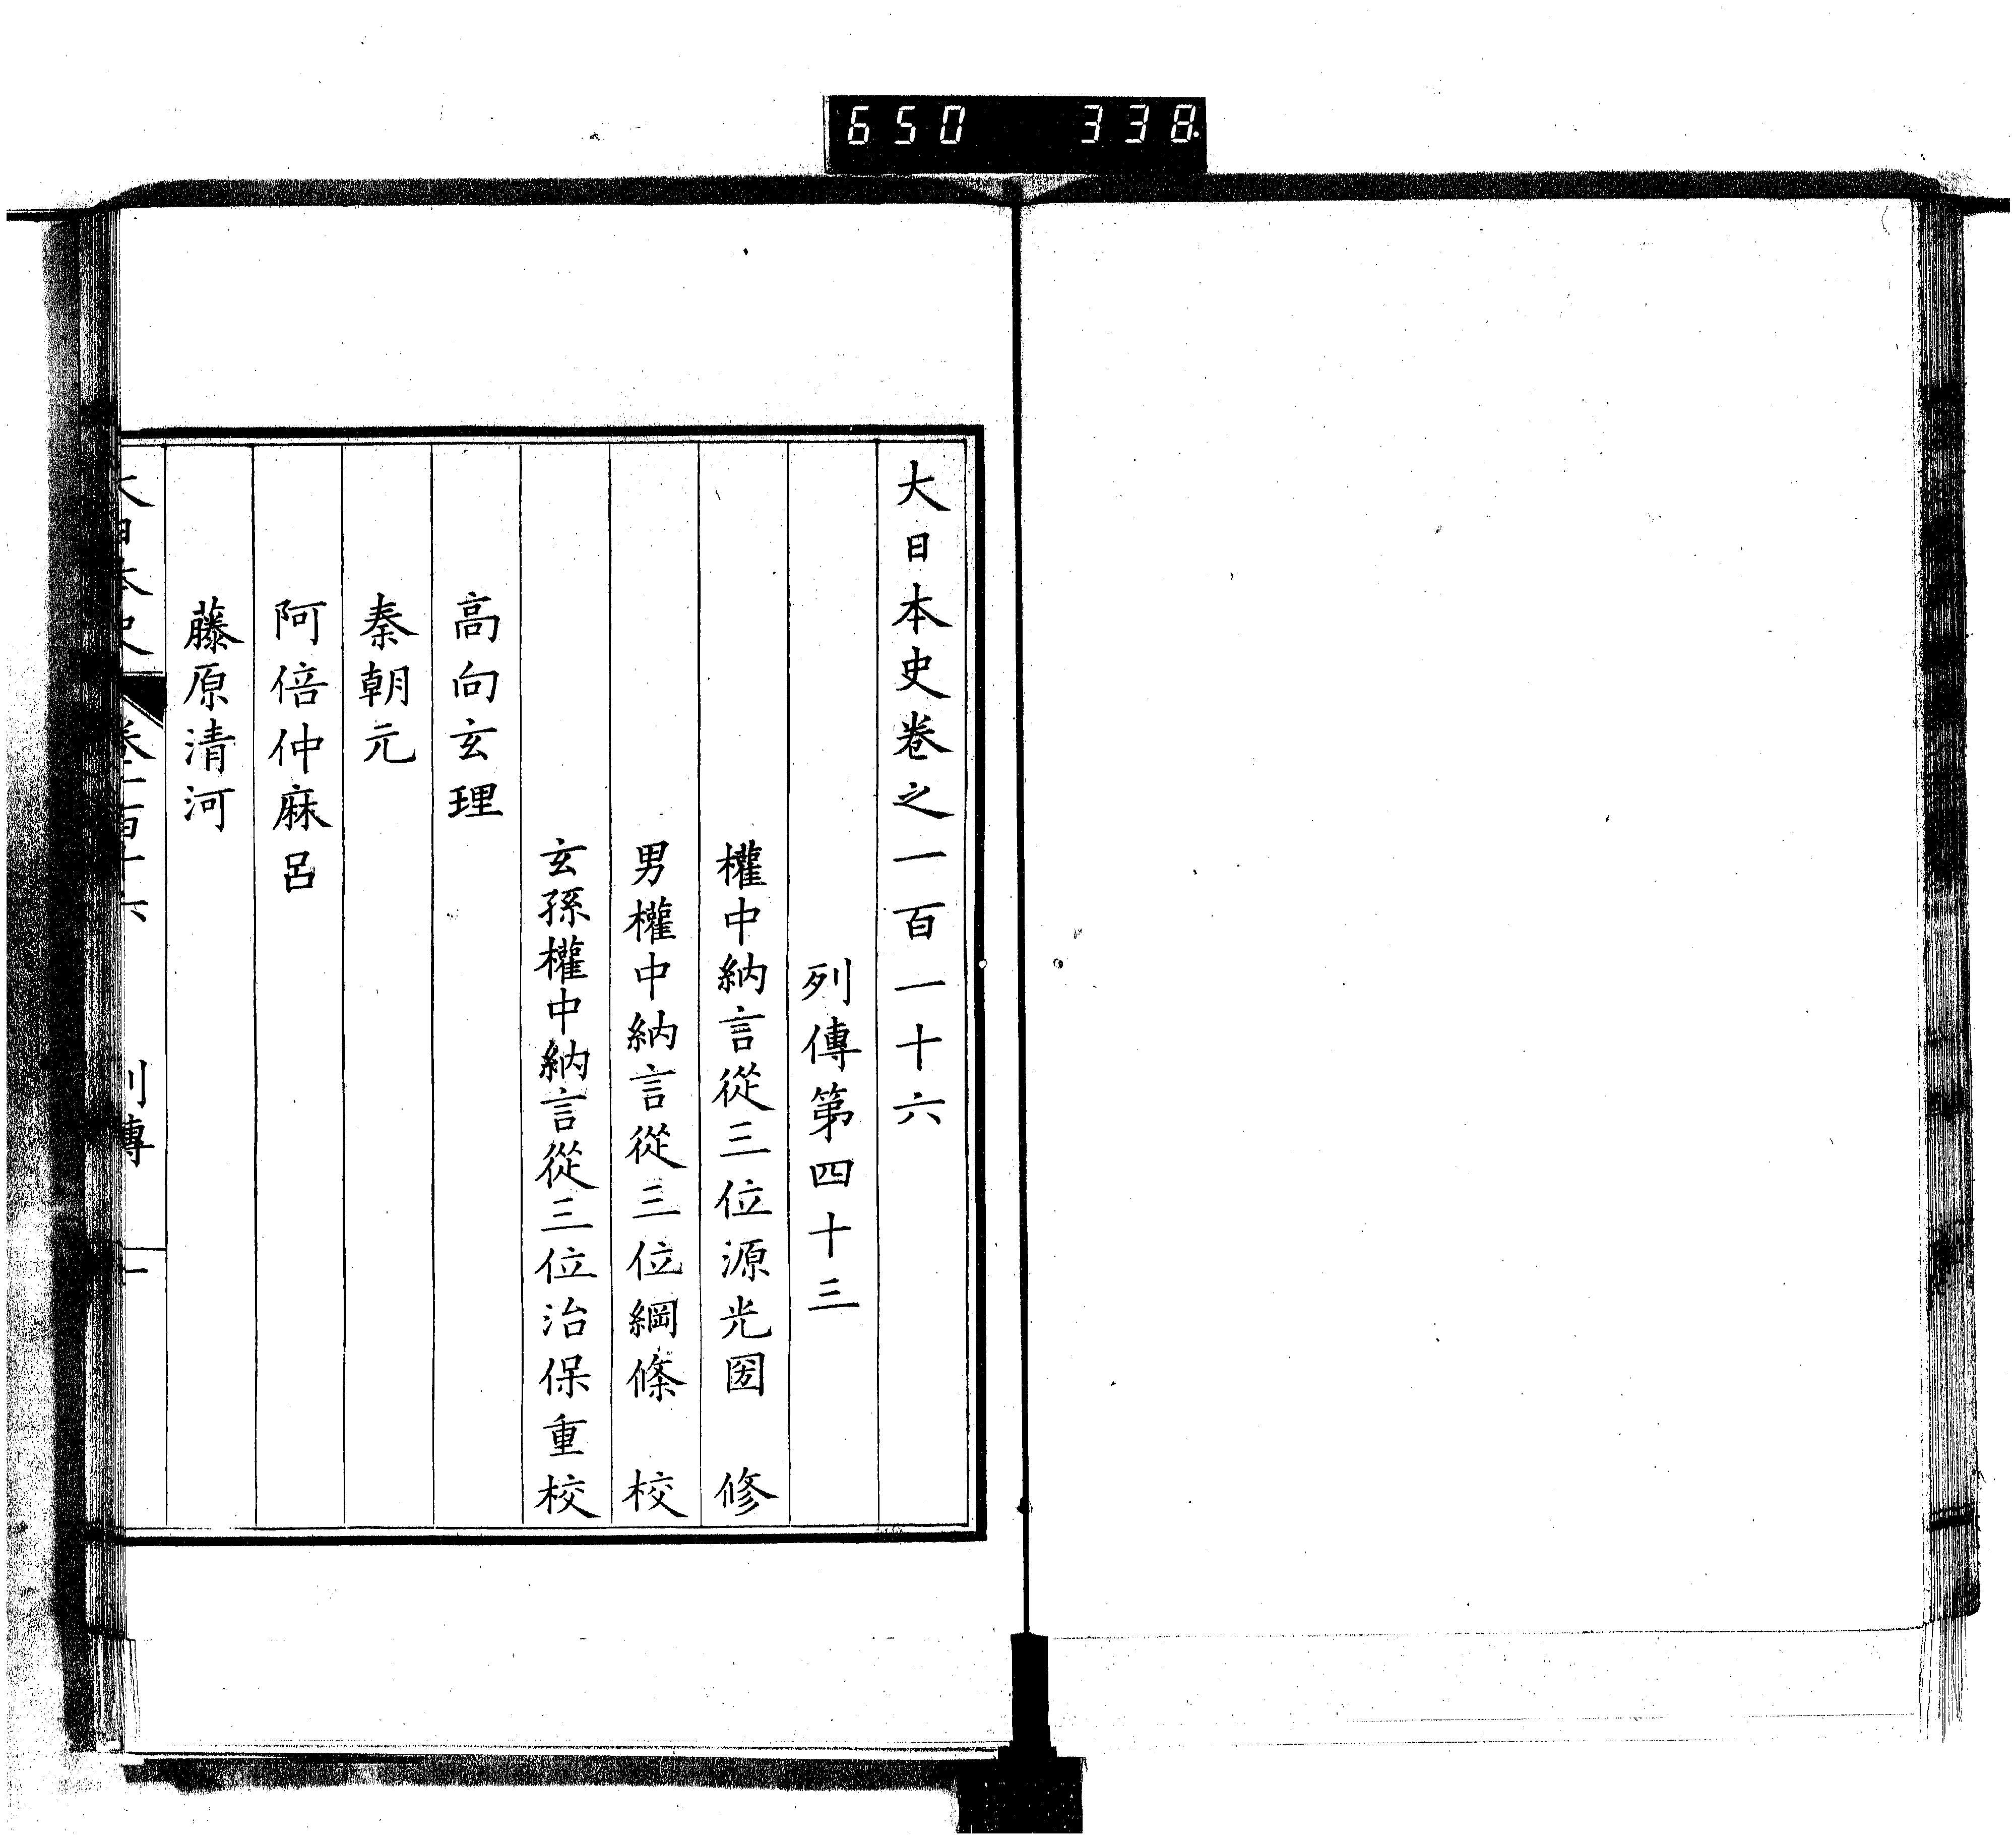 650 338
大日本史卷之一百一十六
列傳第四十三
權中納言從三位源光圀 修
男權中納言從三位綱條 校
玄孫權中納言從三位治保重校
高向玄理
秦朝元
阿倍仲麻呂
藤原清河
大日本史 卷一百十六 列傳 一